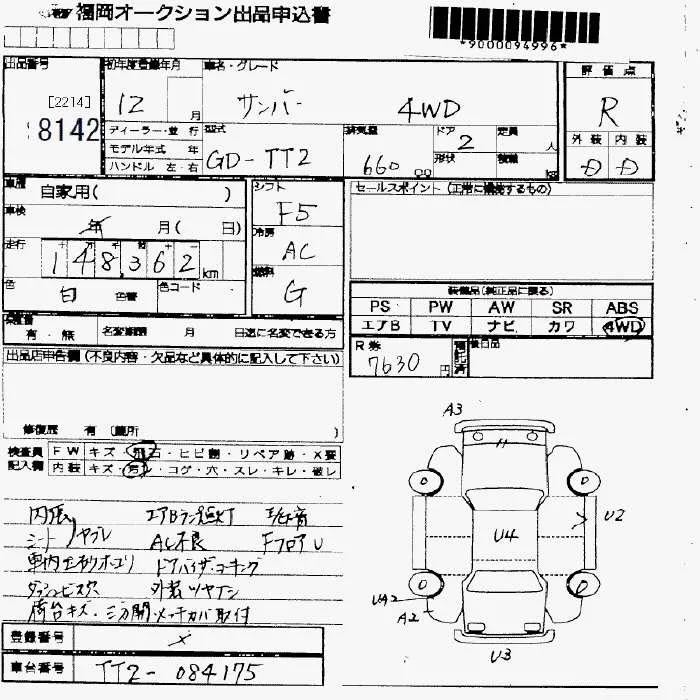 福岡オークション出品申込書
*9000094996*
出品番号 初年度登録年月 車名・グレード 評価点
[2214] 12 月 サンバー 4WD R
8142 ディーラー・並 行 型式 排気量 ドア 2 定員 人 外装 内装
モデル年式 年 GD-TT2 660 cc 形状 積載 kg D D
ハンドル 左・右
車歴 自家用( ) シフト F5 セールスポイント(正常に機能するもの)
車検 年 月( 日) 冷房 AC
走行 148,362 km
燃料 G
色 白 色替 色コード 装備品(純正品に限る)
PS PW AW SR ABS
エアB TV ナビ カワ 4WD
保証書 有・無 名変期限 月 日迄に名変できる方
R券 7630 円 預託済 後日品
出品店申告欄(不良内容・欠品など具体的に記入して下さい)
修復歴 有(箇所 )
検査員 FW キズ・飛石・ヒビ割・リペア跡・X要
記入欄 内装 キズ・汚レ・コゲ・穴・スレ・キレ・破レ
内張 エアBランプ点灯
シート ヤブレ AC不良 Fフロア U
車内 ホコリ ドアバイザーコーキング
ダッシュビス穴 外装ツヤナシ
荷台キズ・三方開
取付
登録番号
車台番号 TT2-084175
A3
U2
U4
UA2
A2
U3